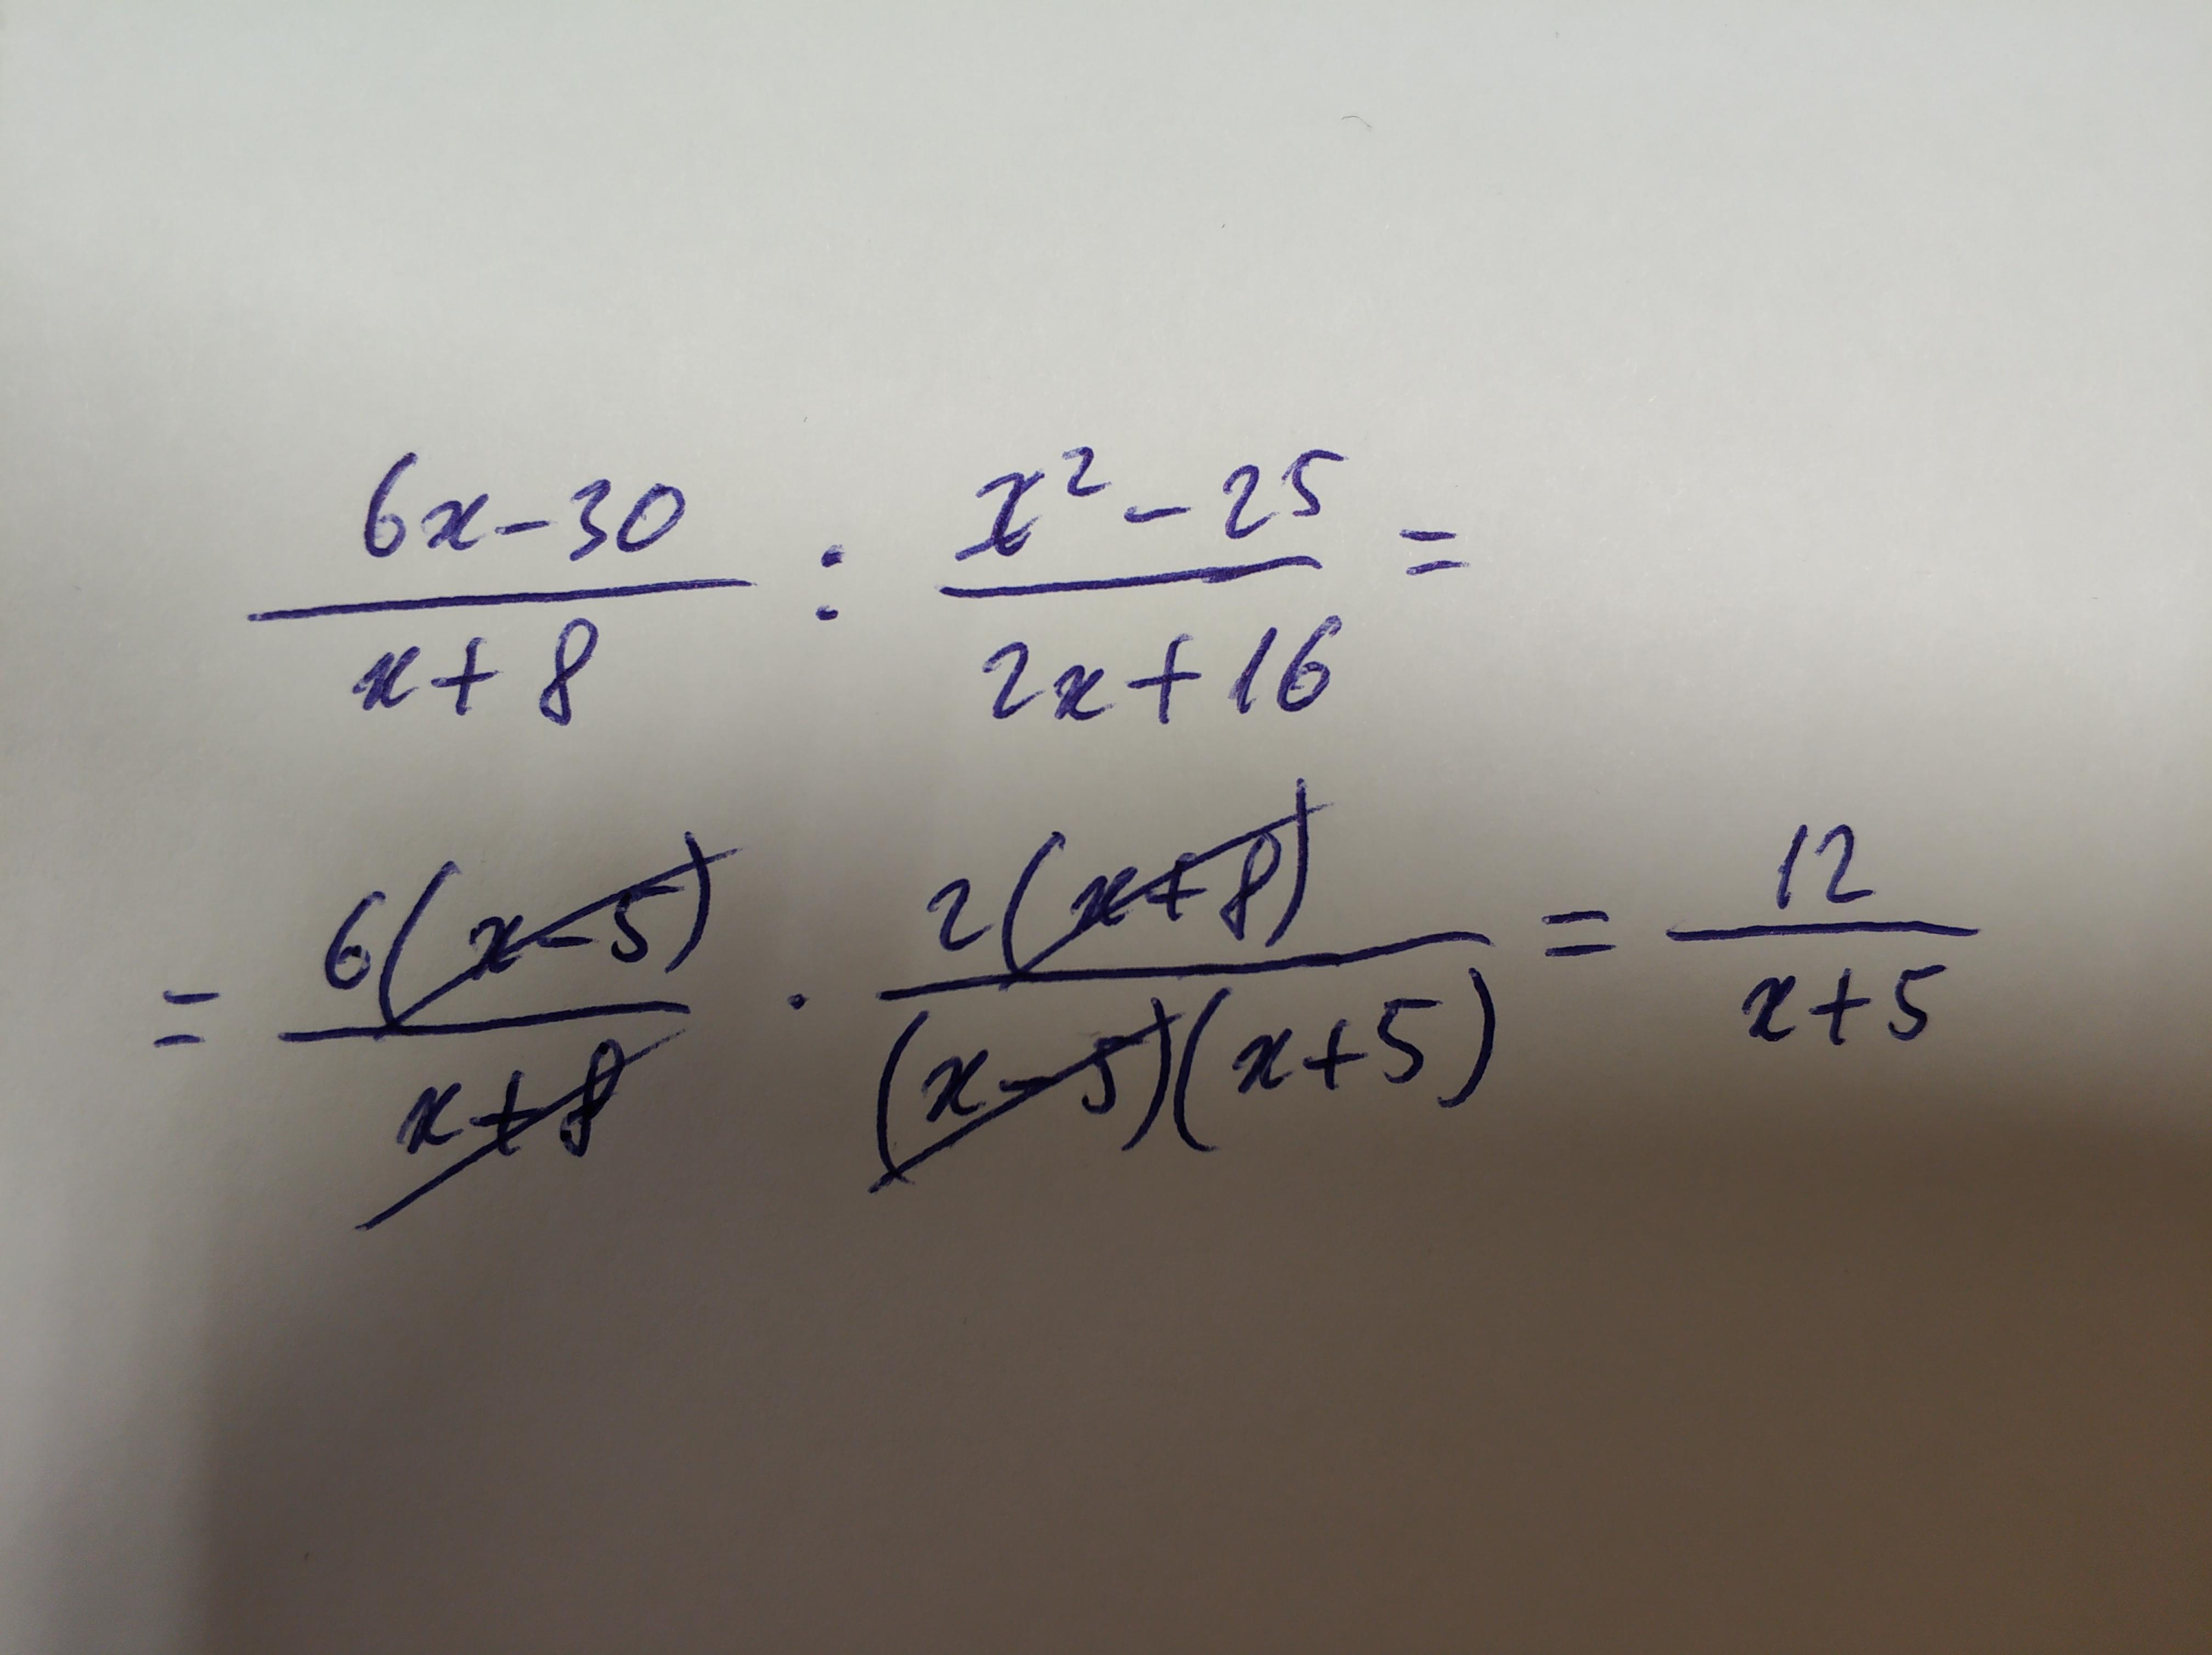 (6x-30)/(x+8) : (x²-25)/(2x+16) =
= 6(x-5)/(x+8) · 2(x+8)/((x-5)(x+5)) = 12/(x+5)